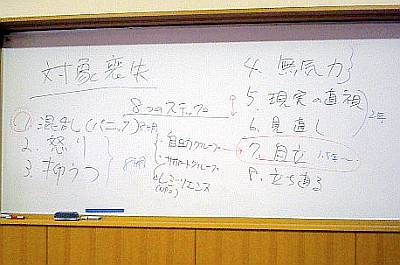 対象喪失
8つのステップ
1. 混乱(パニック)
2. 怒り
3. 抑うつ
・自助グループ
・サポートグループ
4. 無気力
5. 現実の直視
6. 見直し
7. 自立 1.5年〜
8. 立ち直る
2年